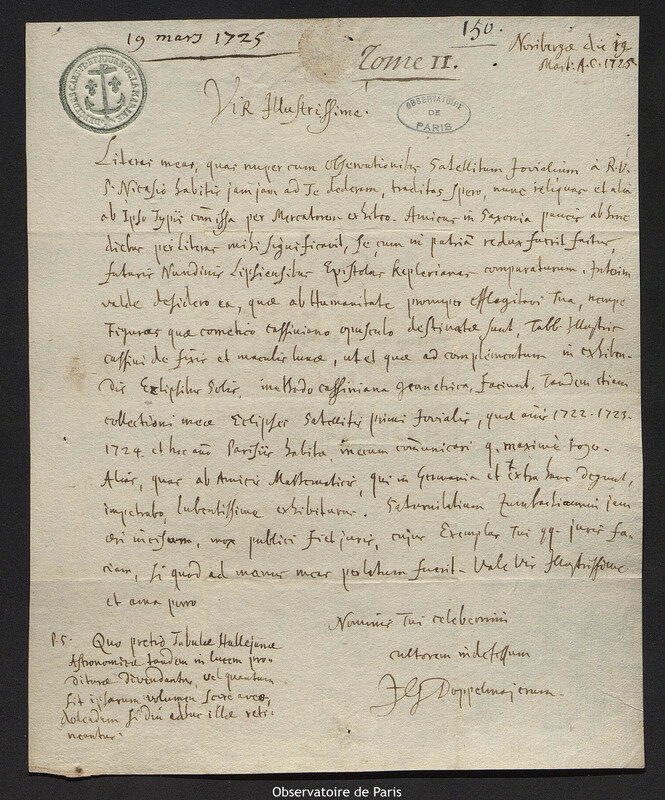 19 mars 1725
150.
Tome II.
Noribergæ die 19
Mart. A.C. 1725
DEP. DES CART. PL. ET JOURN. DE LA MARINE
OBSERVATOIRE
DE
PARIS
Vir Illustrissime.
Literas meas, quas nuper cum Observationibus Satellitum Jovialium à R.P.
P. Nicasio habitis jamjam ad Te dederam, traditas spero, nunc reliquas et alias
ab Ipso Typis commissa per Mercatorem exhibeo. Amicus in Saxonia paucis ab hinc
diebus per literas mihi significavit, se, cum in patriam redux fuerit factus,
futuris Nundinis Lipsiensibus Epistolas Keplerianas comparaturum. Interim
valde desidero ea, quæ ab Humanitate prompe efflagitavi Tua, nempe
Figuras quæ cometico cassiniano opusculo destinatæ sunt, Tabb. Illustris
cassini de fixis et maculis lunæ, ut et quæ ad complementum in exhiben-
dis Eclipsibus Solis, methodo cassiniana geometrica, faciunt, Tandem etiam
collectioni meæ Eclipses Satellitis primi Jovialis, quæ annis 1722. 1723.
1724. et hoc anno Parisiis habitæ, mecum communicari q. maximè rogo.
Alias, quas ab Amicis Mathematicis, qui in Germania et extra hanc degunt,
impetrabo, lubentissime exhibiturus. Saturnilabium jam
æri incisum, mox publici fiet juris, cujus Exemplar Tui qq. juris fa-
ciam, si quod ad manus meas perlatum fuerit. Vale Vir Illustrissime
et ama porro
Nominis Tui celeberrimi
cultorem indefessum
JG Doppelmajerum.
P.S. Quo pretio Tabulæ Hallejanæ
Astronomicæ tandem in lucem pro-
ditoræ divendantur, vel quantum
sit ipsarum volumen scire aveo,
dolendum si diu adhuc illæ reti-
neantur.
Observatoire de Paris